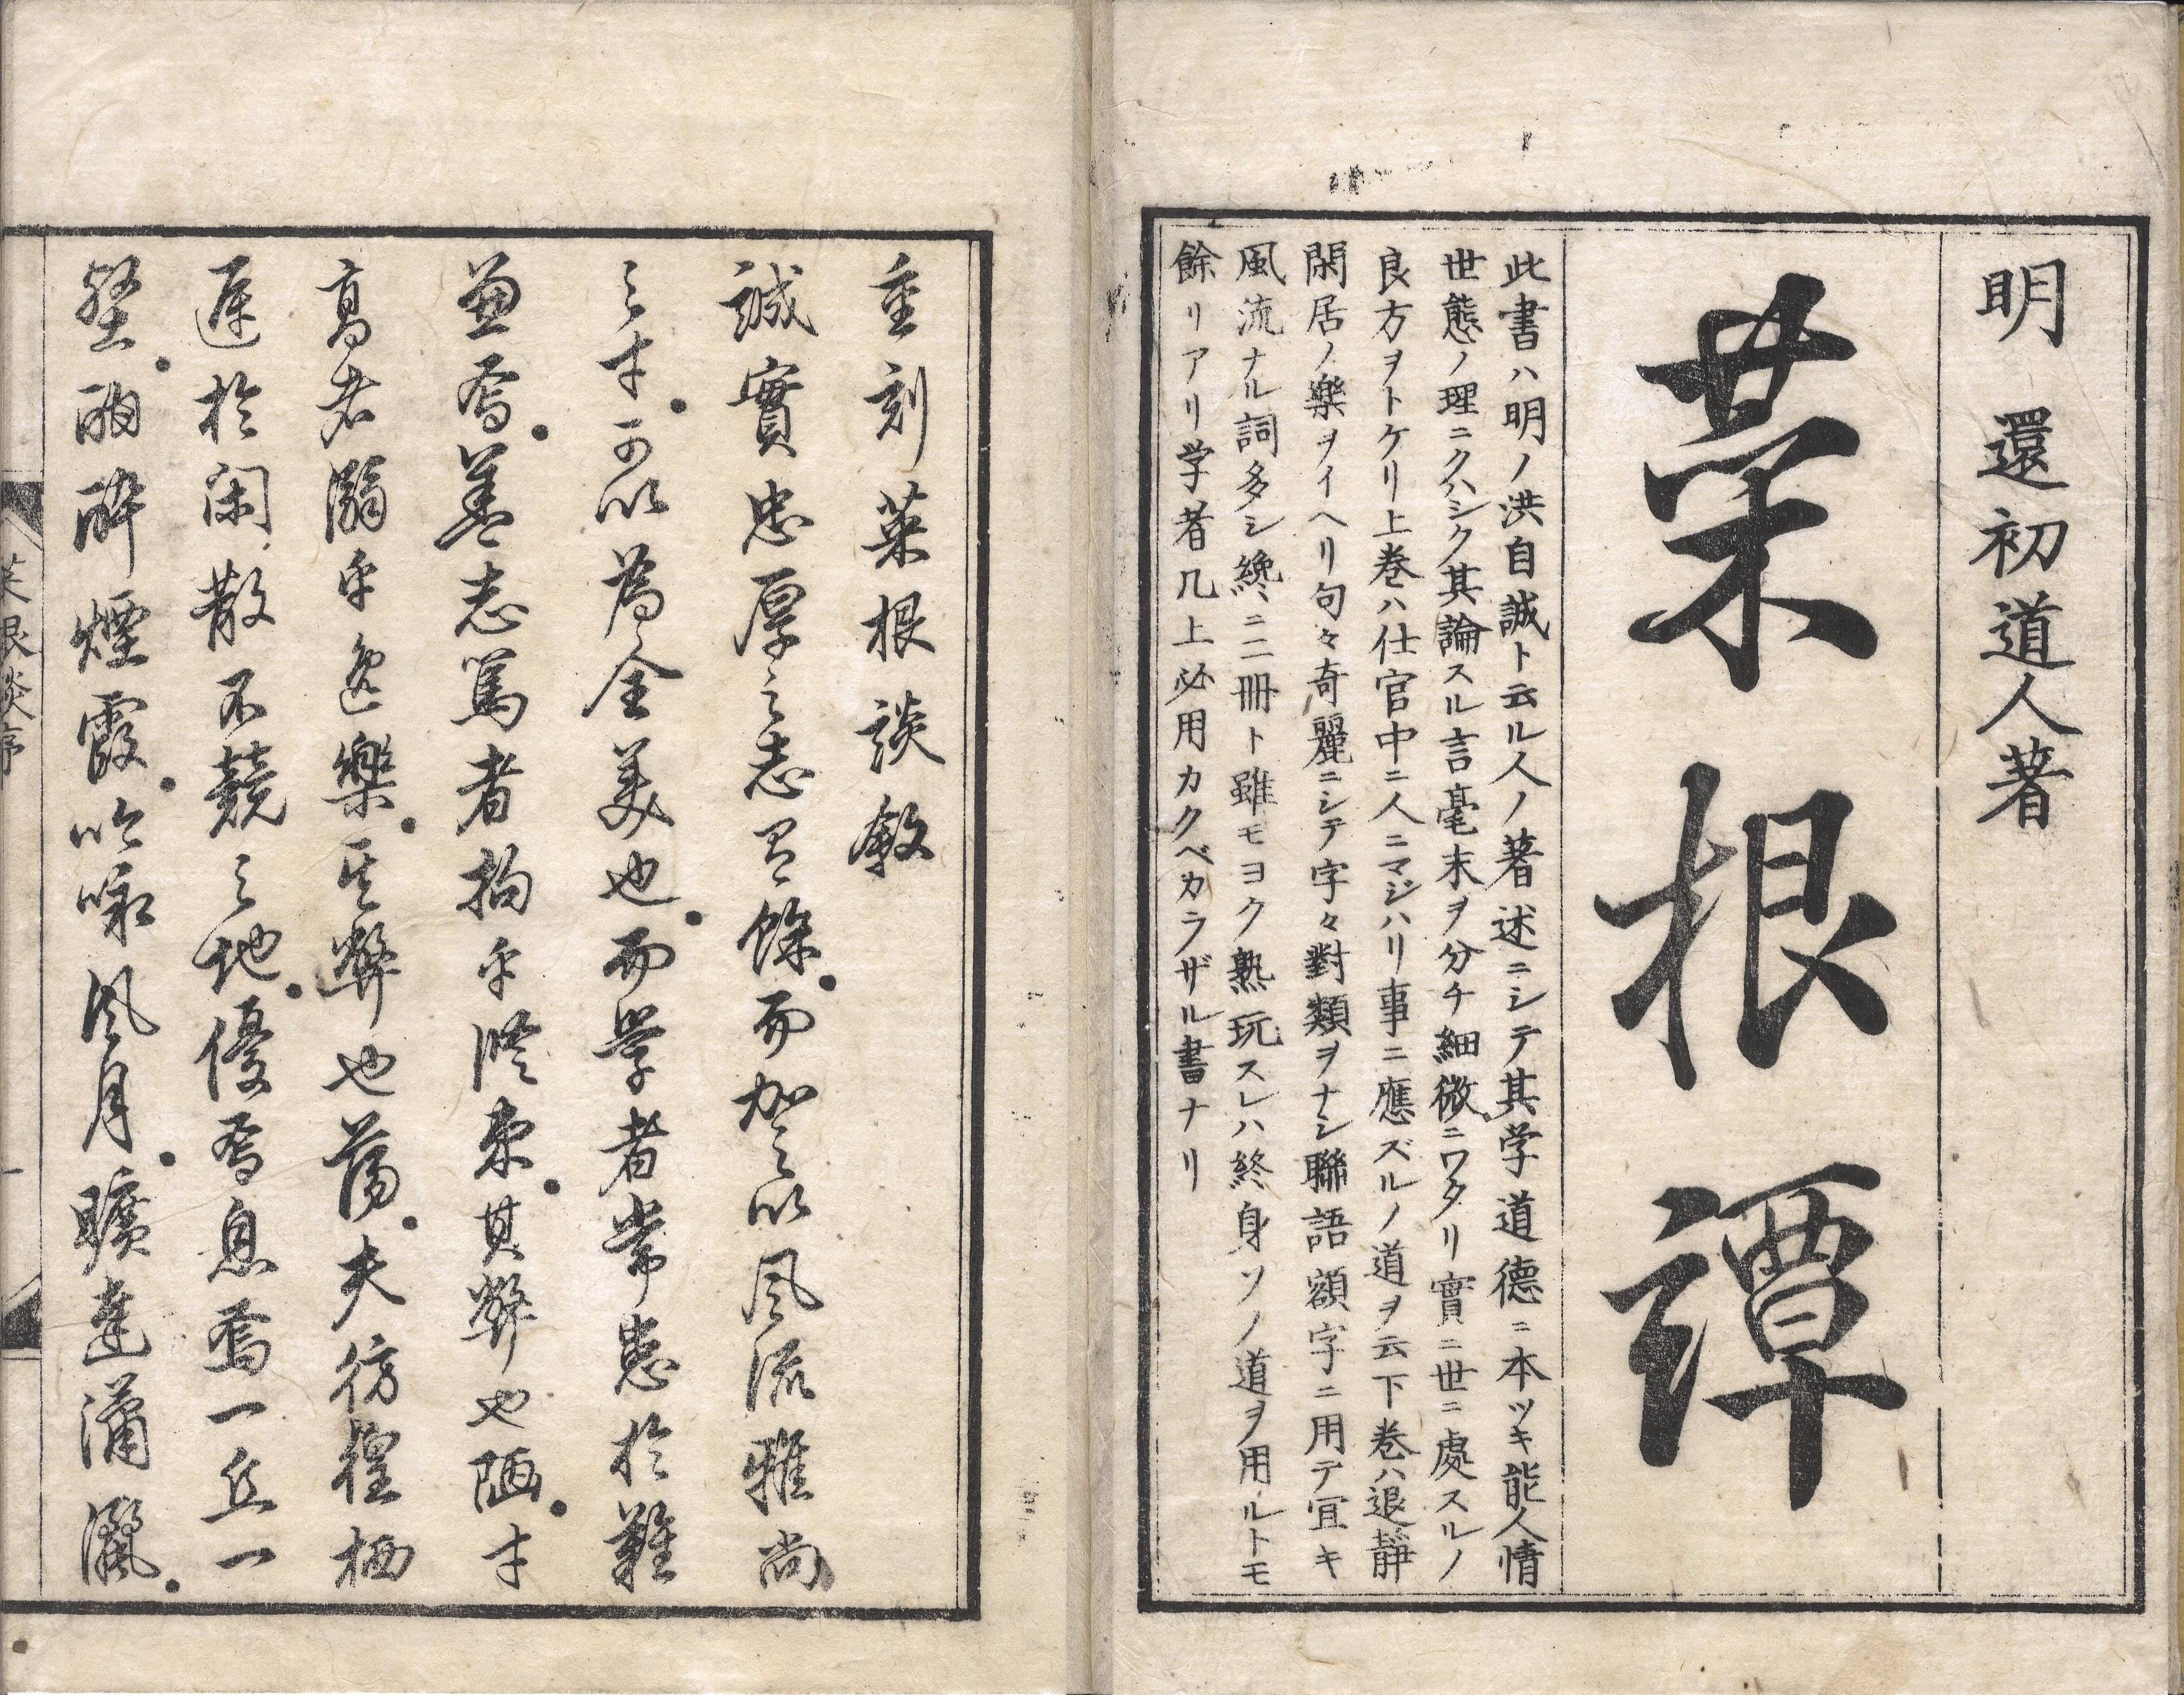 明 還初道人著
菜根譚
此書ハ明ノ洪自誠ト云ル人ノ著述ニシテ其学道德ニ本ツキ能人情
世態ノ理ニクハシク其論スル言毫末ヲ分チ細微ニワタリ實ニ世ニ處スルノ
良方ヲトケリ上巻ハ仕官中ニ人ニマジハリ事ニ應ズルノ道ヲ云下巻ハ退靜
閑居ノ樂ヲイヘリ句々奇麗ニシテ字々對類ヲナシ聯語額字ニ用テ宜キ
風流ナル詞多シ纔ニ二冊ト雖モヨク熟玩スレハ終身ソノ道ヲ用ルトモ
餘リアリ学者几上必用カクベカラザル書ナリ
重刻菜根談敘
誠實忠厚之志有餘而加之以風流雅尚
之才可以為全美也而學者常患於難
兼焉蓋志篤者拘乎檢束其弊也陋才
高者溺乎逸樂其弊也蕩夫彷徨栖
遲於閑散不競之地優焉息焉一丘一
壑酒醉煙霞吟咏風月曠達瀟灑
菜根談序
一